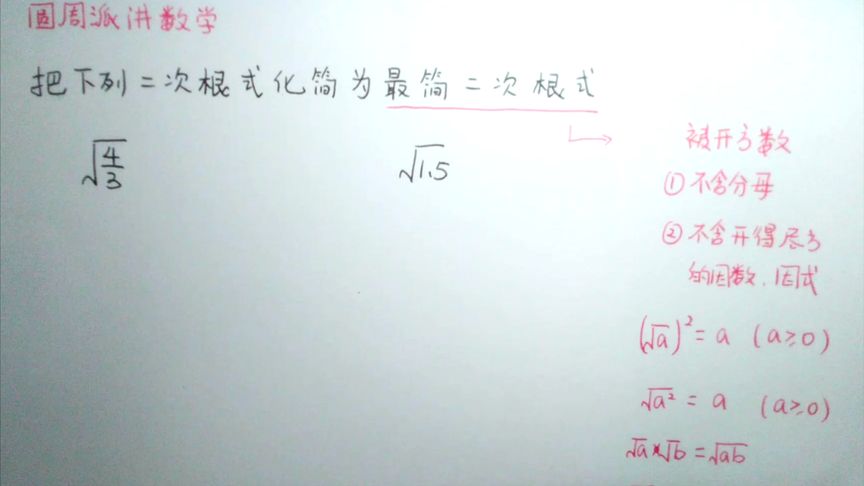 圆周派讲数学
把下列二次根式化简为最简二次根式
√(4/3) √1.5
被开方数
①不含分母
②不含开得尽方
的因数、因式
(√a)² = a (a≥0)
√a² = a (a≥0)
√a×√b = √ab